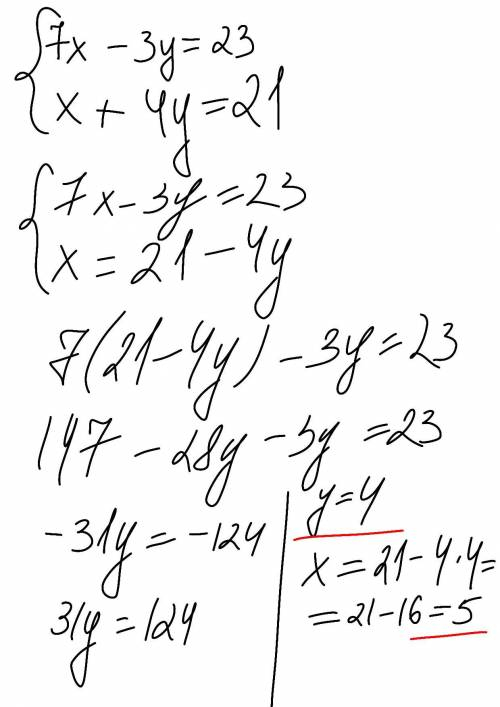 7x - 3y = 23
x + 4y = 21
7x - 3y = 23
x = 21 - 4y
7(21 - 4y) - 3y = 23
147 - 28y - 3y = 23
-31y = -124
31y = 124
y = 4
x = 21 - 4·4 =
= 21 - 16 = 5